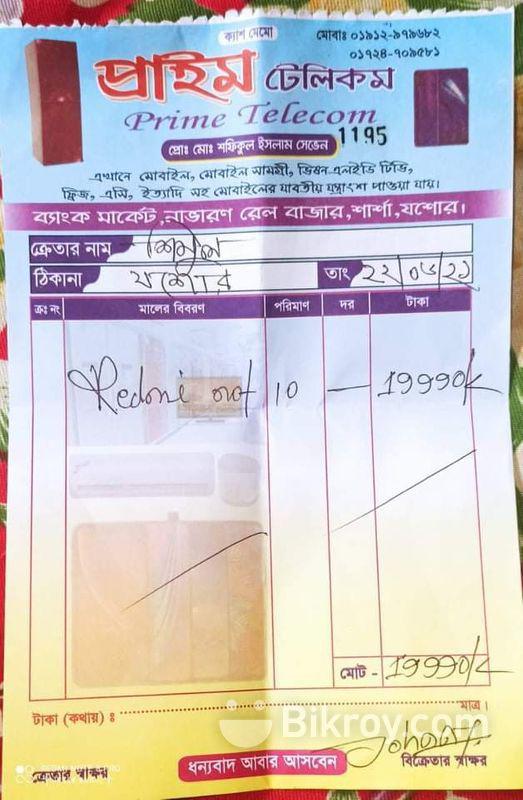 ক্যাশ মেমো
মোবাঃ ০১৯১২-৯৭৯৬৮২
০১৭২৪-৭০৯৫৮১
প্রাইম টেলিকম
Prime Telecom
প্রোঃ মোঃ শফিকুল ইসলাম সেভেন 1195
এখানে মোবাইল, মোবাইল সামগ্রী, ভিশন এলইডি টিভি,
ফ্রিজ, এসি, ইত্যাদি সহ মোবাইলের যাবতীয় যন্ত্রাংশ পাওয়া যায়।
ব্যাংক মার্কেট, নাভারণ রেল বাজার, শার্শা, যশোর।
ক্রেতার নাম
ঠিকানা যশোর তাং ২২/০৬/২১
ক্রঃ নং মালের বিবরণ পরিমাণ দর টাকা
Redmi not 10 — 19990/-
মোট - 19990/-
টাকা (কথায়) ঃ মাত্র।
Bikroy.com
ক্রেতার স্বাক্ষর ধন্যবাদ আবার আসবেন বিক্রেতার স্বাক্ষর